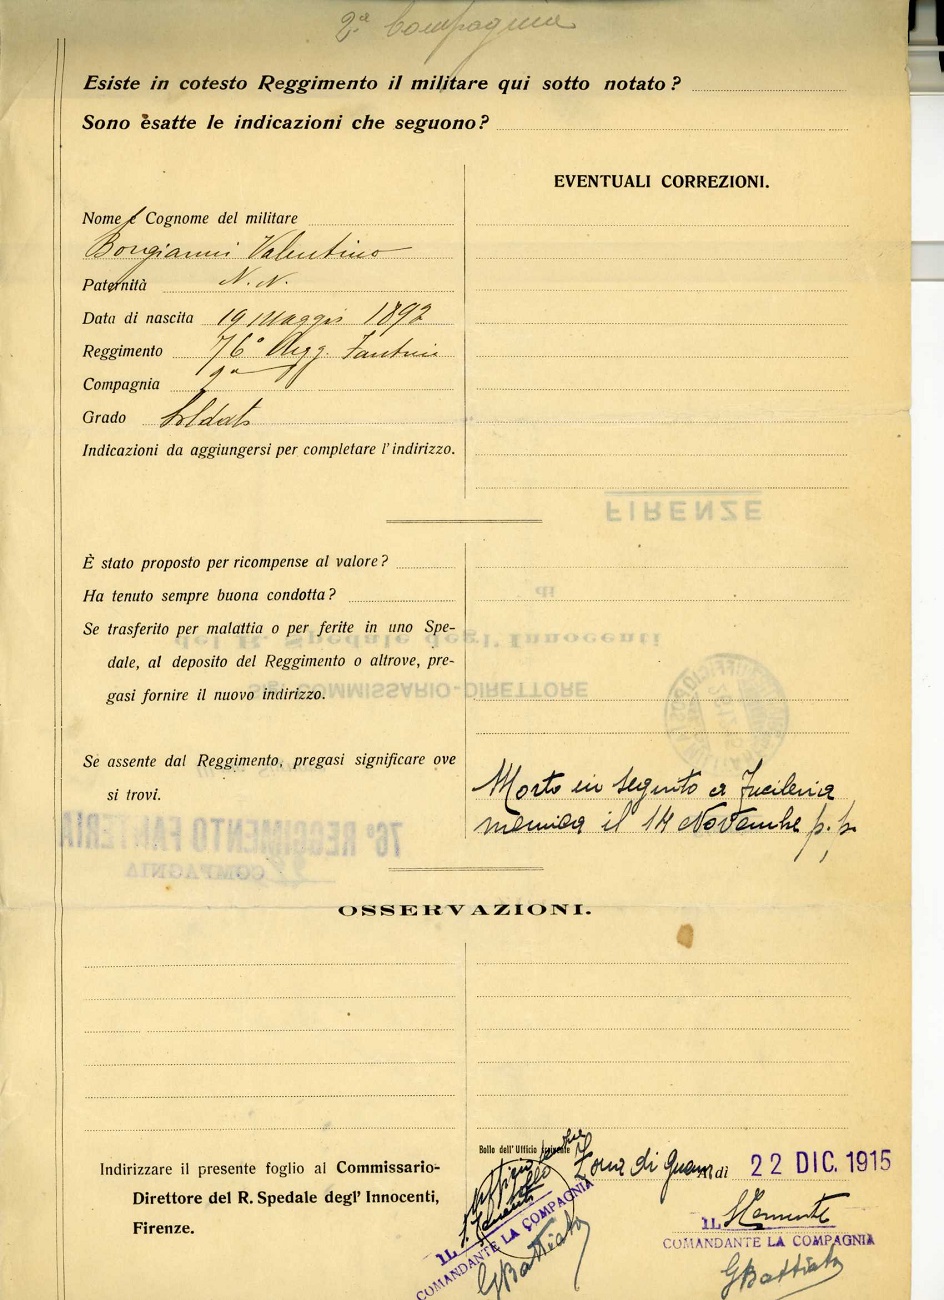 2ª Compagnia
Esiste in cotesto Reggimento il militare qui sotto notato?
Sono esatte le indicazioni che seguono?
EVENTUALI CORREZIONI.
Nome e Cognome del militare
Bongianni Valentino
Paternità N. N.
Data di nascita 19 Maggio 1892
Reggimento 76° Regg. Fanteria
Compagnia
Grado Soldato
Indicazioni da aggiungersi per completare l'indirizzo.
FIRENZE
È stato proposto per ricompense al valore?
Ha tenuto sempre buona condotta?
di
Se trasferito per malattia o per ferite in uno Spe-
del R. Spedale degl'Innocenti
dale, al deposito del Reggimento o altrove, pre-
gasi fornire il nuovo indirizzo.
Sig. COMMISSARIO-DIRETTORE
Se assente dal Reggimento, pregasi significare ove
si trovi.
Morto in seguito a fucileria
nemica il 14 Novembre p. p.
76° REGGIMENTO FANTERIA
COMPAGNIA
OSSERVAZIONI.
Indirizzare il presente foglio al Commissario-
Direttore del R. Spedale degl' Innocenti,
Firenze.
Bollo dell'Ufficio
Zona di guerra, addì 22 DIC. 1915
IL
COMANDANTE LA COMPAGNIA
GBattiato
IL
COMANDANTE LA COMPAGNIA
GBattiato